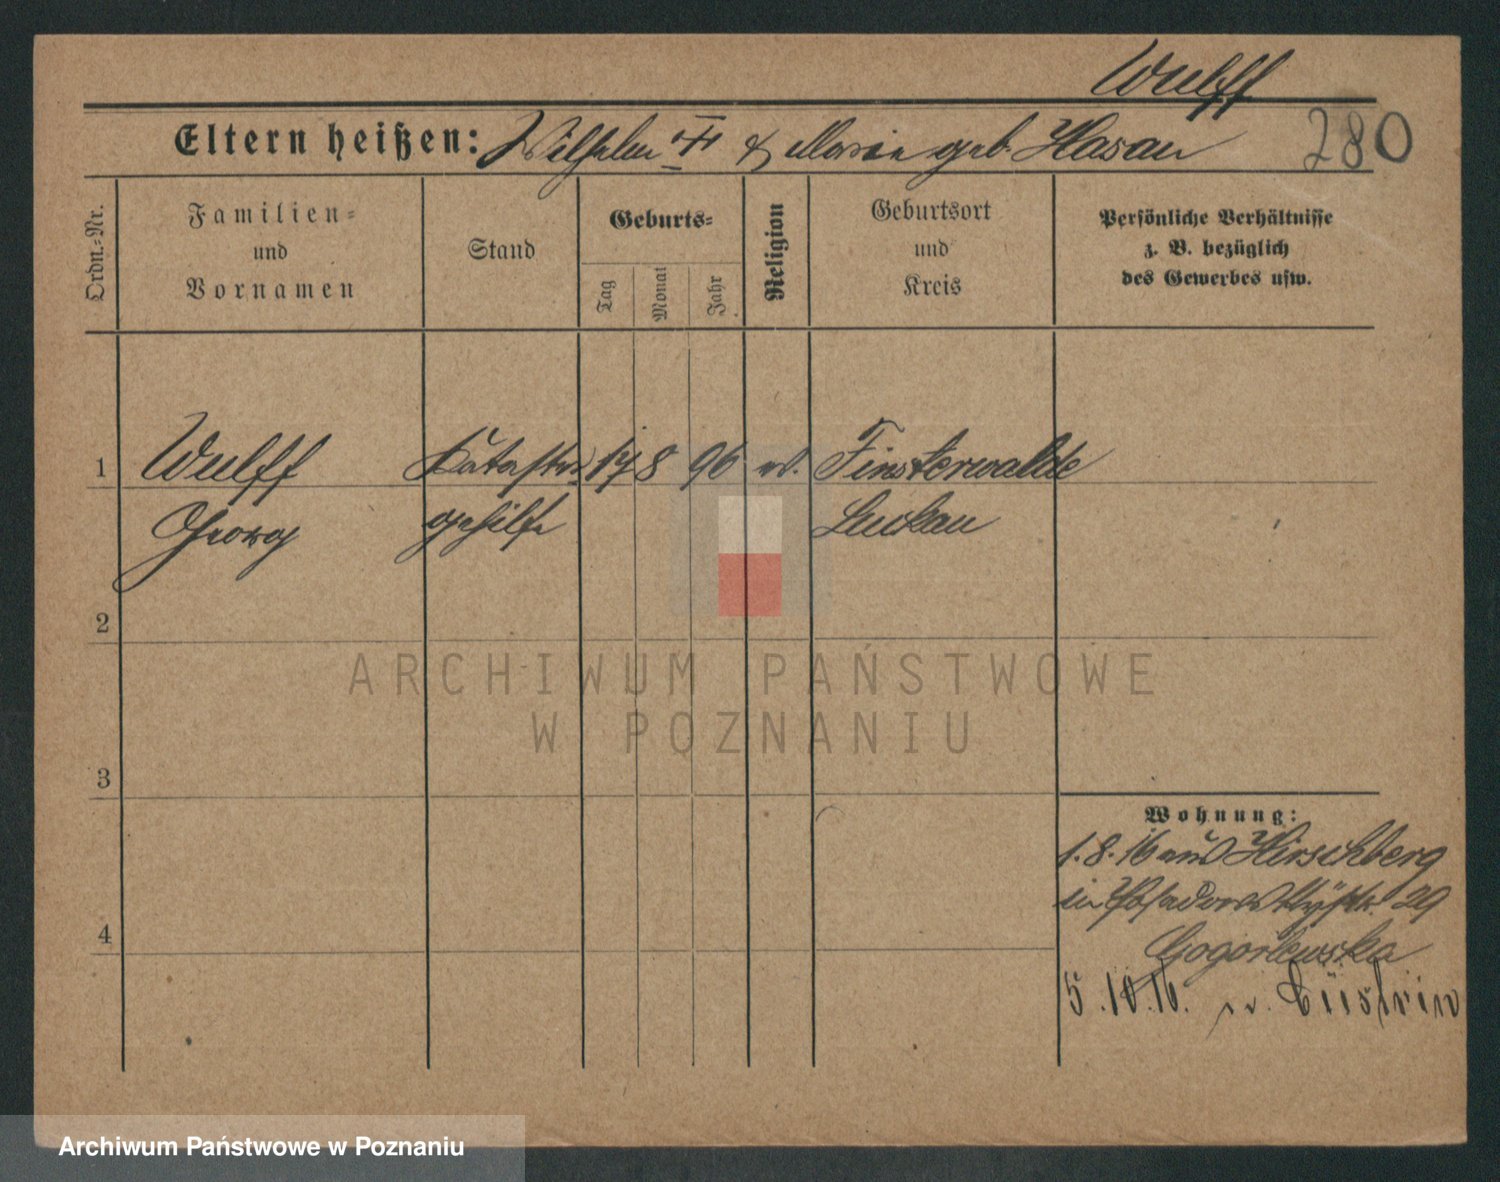 Wulff
Eltern heißen: Wilhelm & Marie geb. Hasan
280
Ordn.-Nr.
Familien-
und
Vornamen
Stand
Geburts-
Tag
Monat
Jahr
Religion
Geburtsort
und
Kreis
Persönliche Verhältnisse
z. B. bezüglich
des Gewerbes usw.
1
Wulff Kataster 17 8 96 ev. Finsterwalde
Georg gehilfe Luckau
2
ARCHIWUM PAŃSTWOWE
W POZNANIU
3
Wohnung:
1.8.16 aus Hirschberg
in 29
4
Gogorlewska
5.10.16. n. Cüstrin
Archiwum Państwowe w Poznaniu